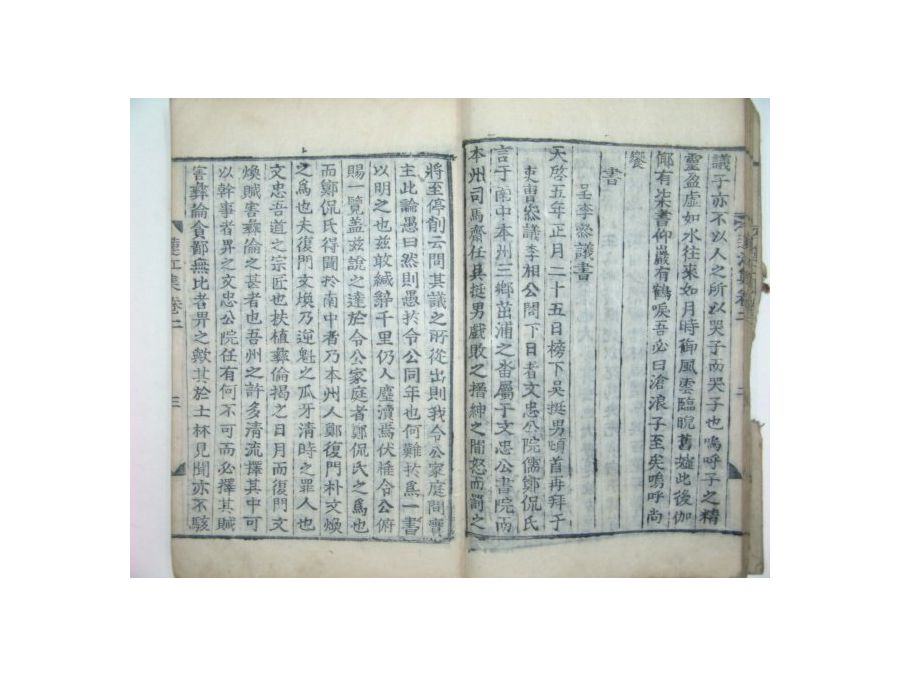 議子亦不以人之所以哭子而哭子也嗚呼子之精
靈盈虛如水往來如月時御風雲臨睨舊墟此後伽
倻有柒書仰巖有鶴唳吾必曰滄浪子至矣嗚呼尚
饗
書
呈李叅議書
天啓五年正月二十五日榜下吳挺男頓首再拜于
吏曹叅議李相公閤下日者文忠公院儒鄭侃氏
言于南中本州三鄉茁浦之畓屬于文忠公書院而
本州司馬齋任吳挺男戱敗之搢紳之間怒而罰之
將至停削云問其議之所從出則我令公家庭間實
主此論愚曰然則愚於令公同年也何難於爲一書
以明之也玆敢緘辭千里仍人塵瀆焉伏惟令公俯
賜一覽盖玆說之達於令公家庭者鄭侃氏之爲也
而鄭侃氏得聞於南中者乃本州人鄭復門朴文煥
之爲也夫復門文煥乃逆魁之瓜牙淸時之罪人也
文忠吾道之宗匠也扶植彛倫揭之日月而復門文
煥賊害彛倫之甚者也吾州之許多淸流擇其中可
以幹事者畀之文忠公院任有何不可而必擇其賊
害彛倫貪鄙無比者畀之歟其於士林見聞亦不駭
蓮江集 卷二
三